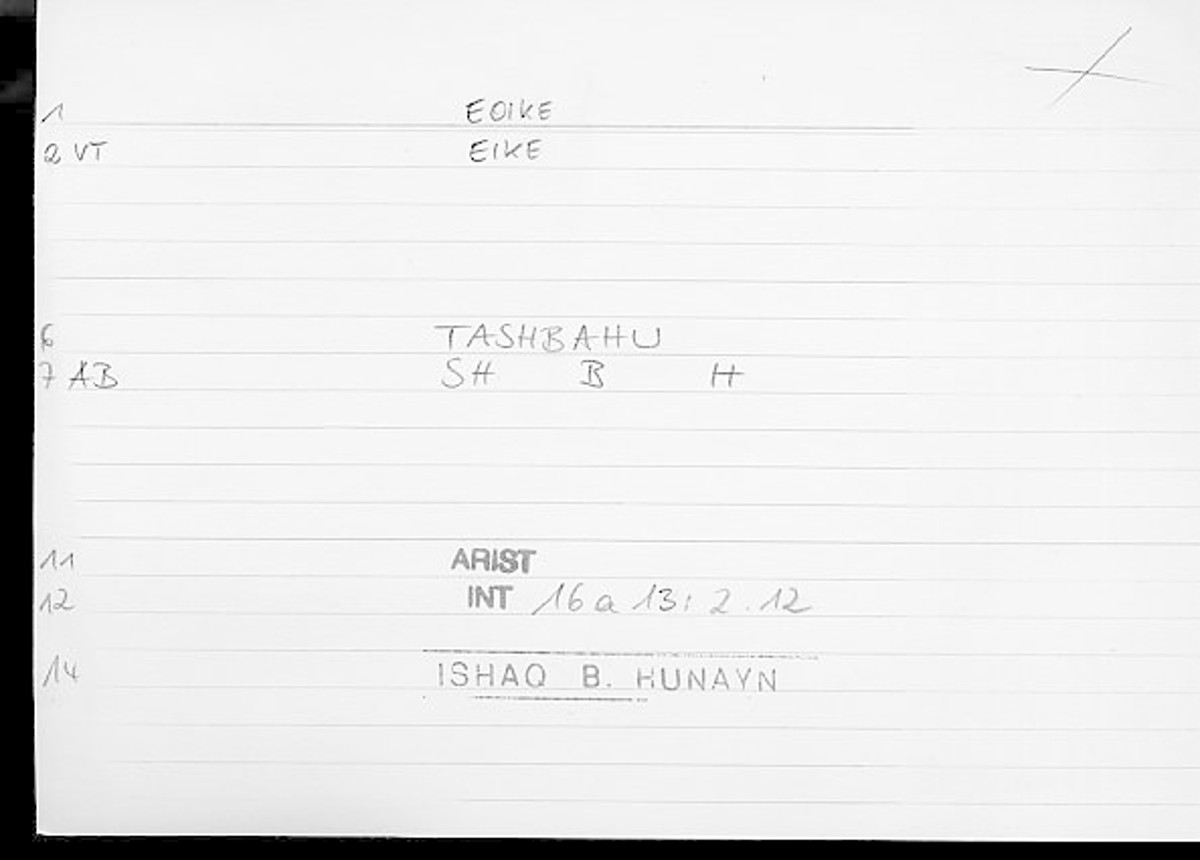 1 EOIKE
2 VT EIKE
6 TASHBAHU
7 AB SH B H
11 ARIST
12 INT 16a 13: 2.12
14 ISHAQ B. HUNAYN